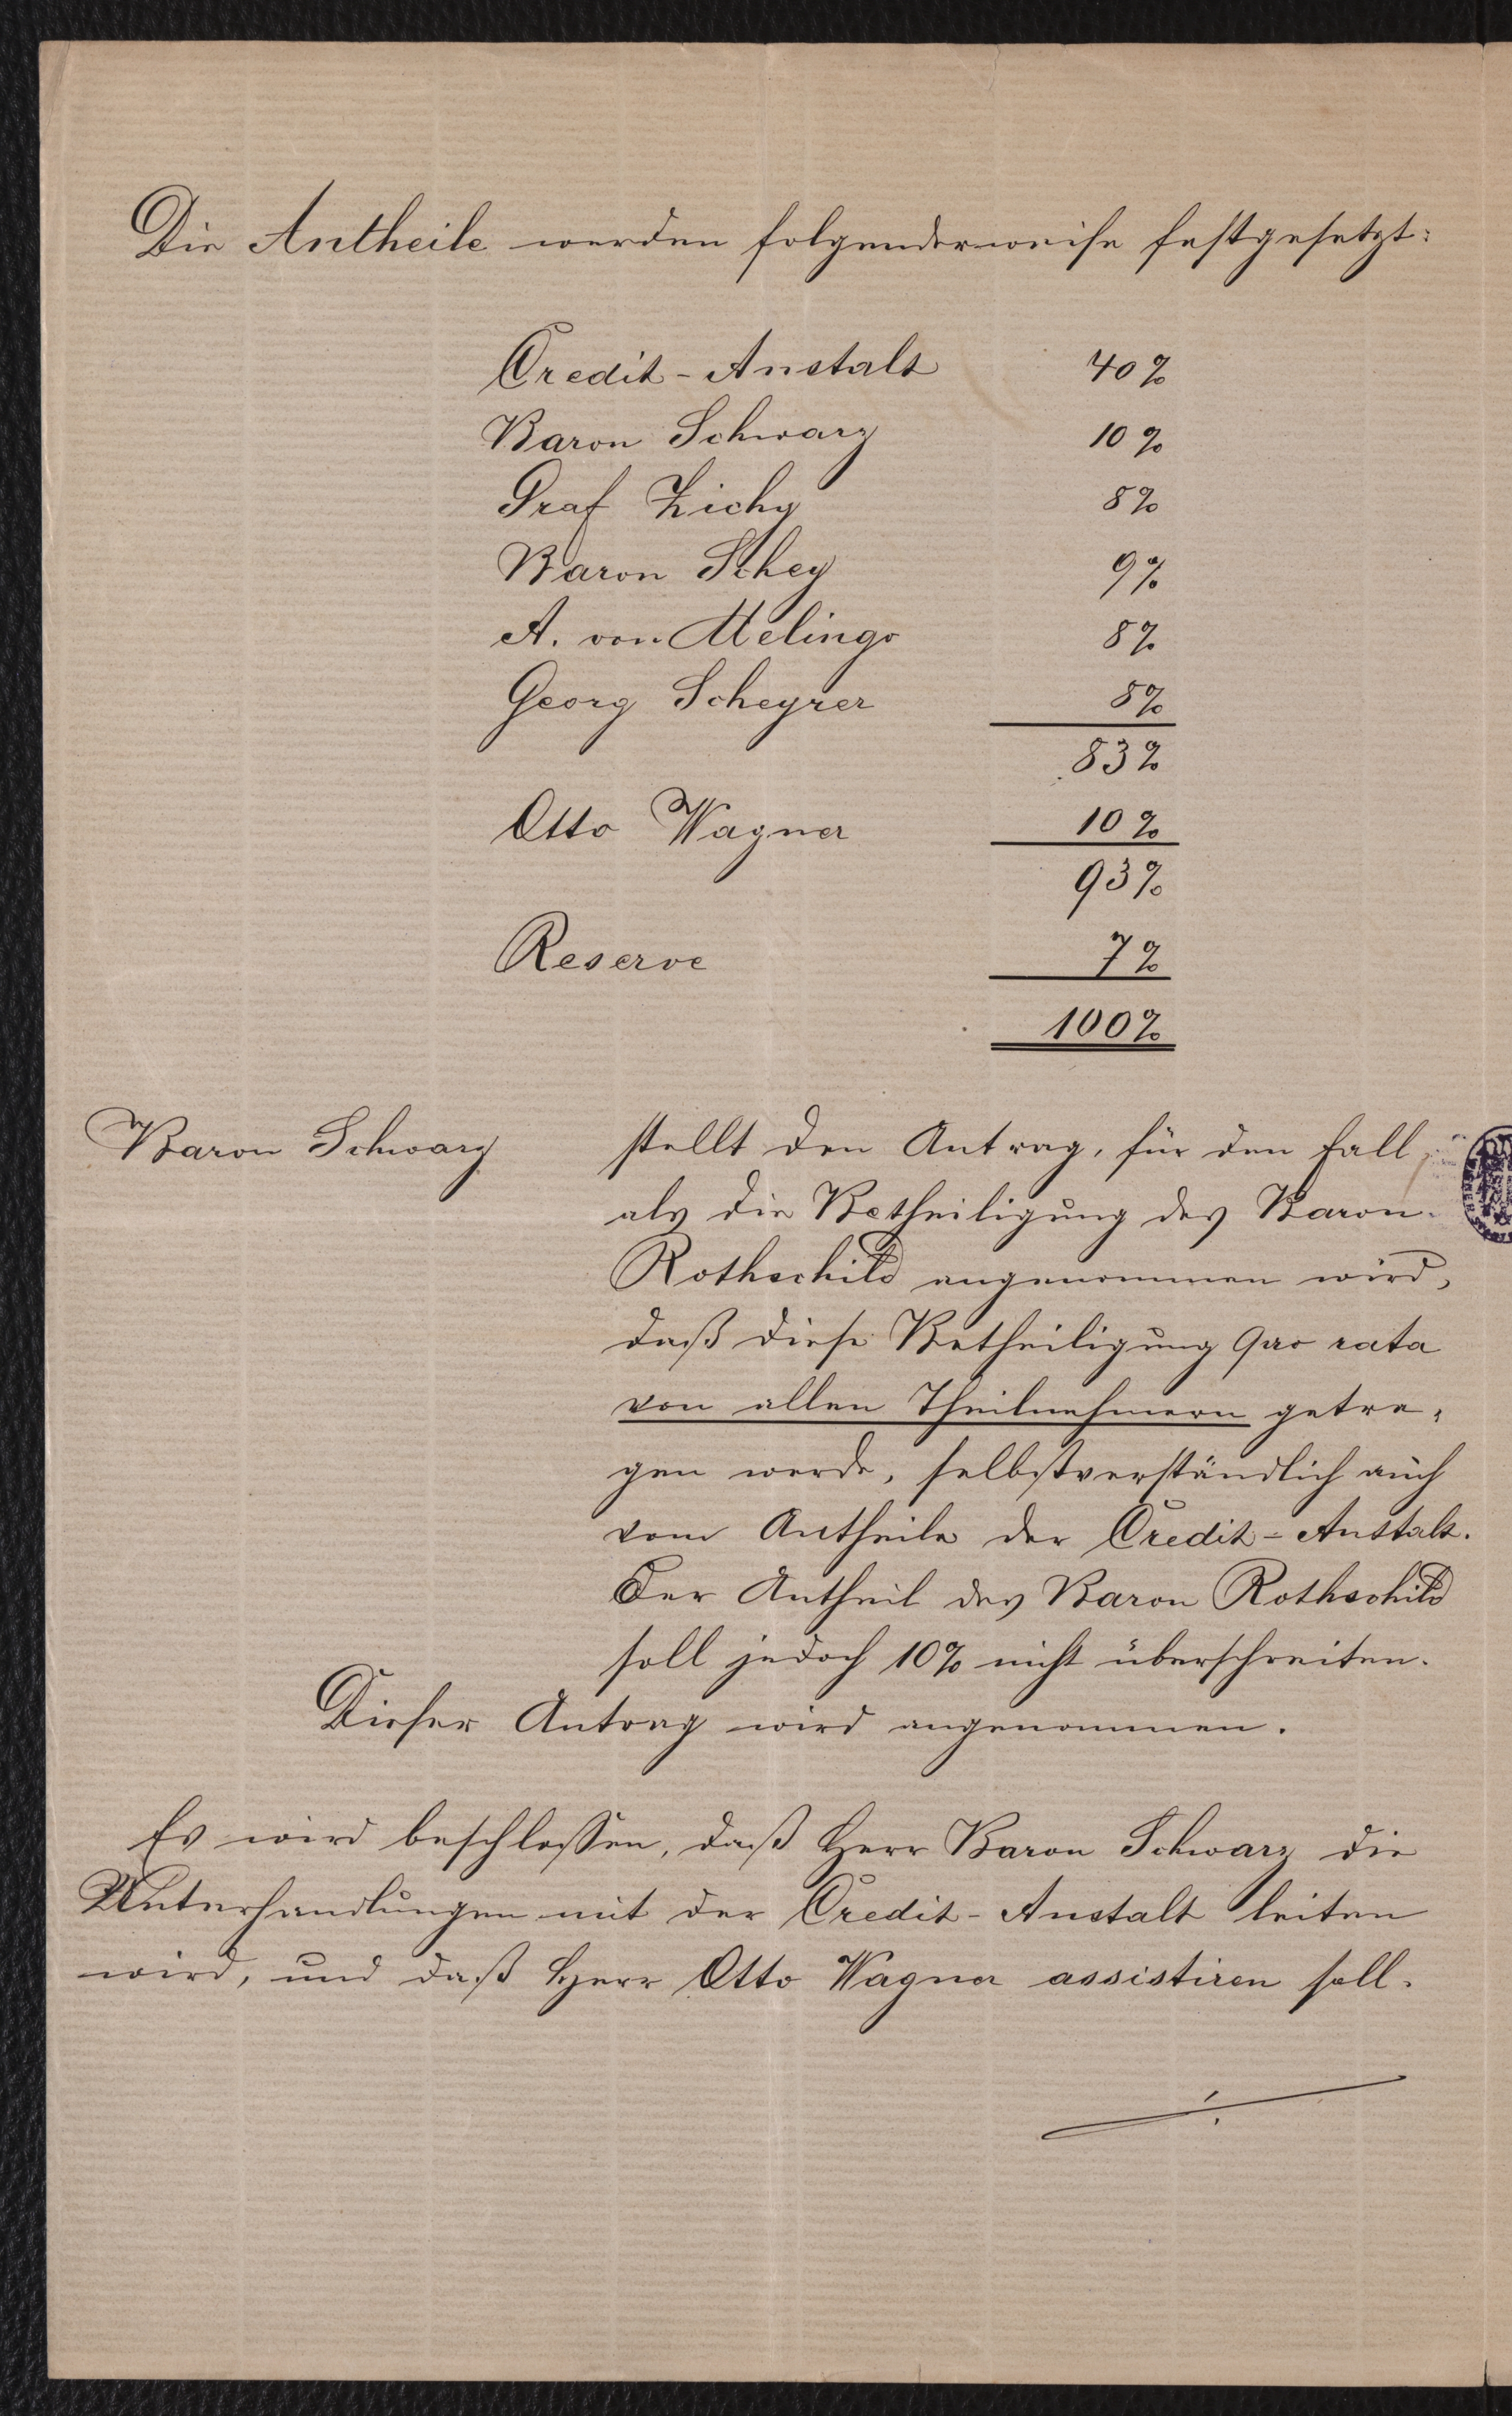 Die Antheile werden folgenderweise festgesetzt:
Credit-Anstalt 40%
Baron Schwarz 10%
Graf Zichy 8%
Baron Schey 9%
A. von Melingo 8%
Georg Scheyrer 8%
83%
Otto Wagner 10%
93%
Reserve 7%
100%
Baron Schwarz stellt den Antrag, für den Fall
als die Betheiligung des Baron
Rothschild angenommen wird,
daß diese Betheiligung pro rata
von allen Theilnehmern getra-
gen werde, selbstverständlich auch
vom Antheile der Credit-Anstalt.
Der Antheil des Baron Rothschild
soll jedoch 10% nicht überschreiten.
Dieser Antrag wird angenommen.
Es wird beschlossen, daß Herr Baron Schwarz die
Unterhandlungen mit der Credit-Anstalt leiten
wird, und daß Herr Otto Wagner assistiren soll.